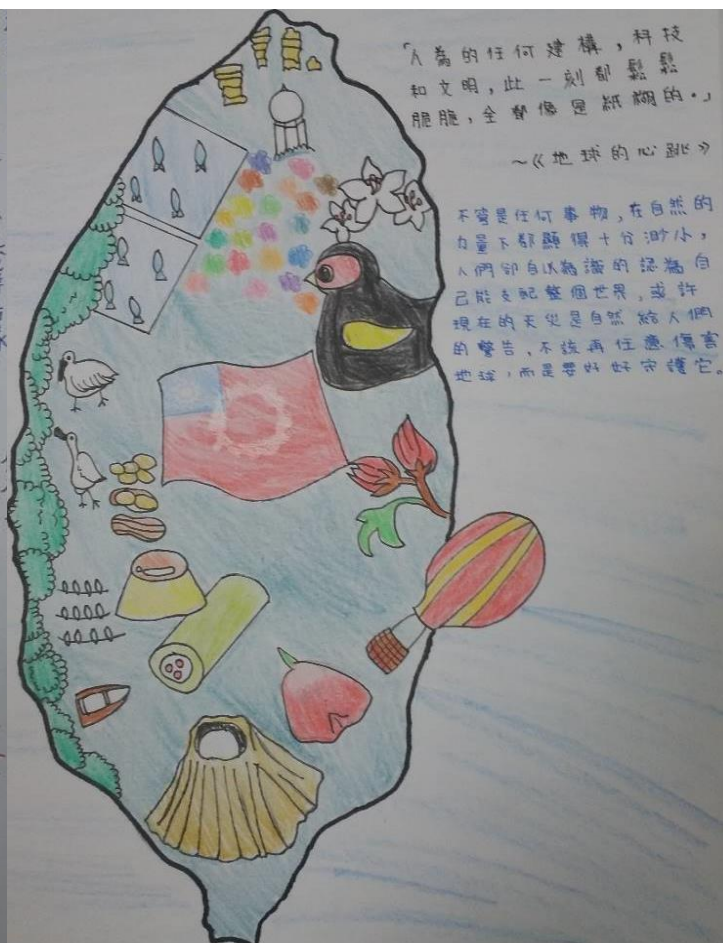 「人為的任何建構，科技
和文明，此一刻都鬆鬆
脆脆，全都像是紙糊的。」
～《地球的心跳》
不管是任何事物，在自然的
力量下都顯得十分渺小，
人們卻自以為識的認為自
己能支配整個世界，或許
現在的天災是自然給人們
的警告，不該再任意傷害
地球，而是要好好守護它。